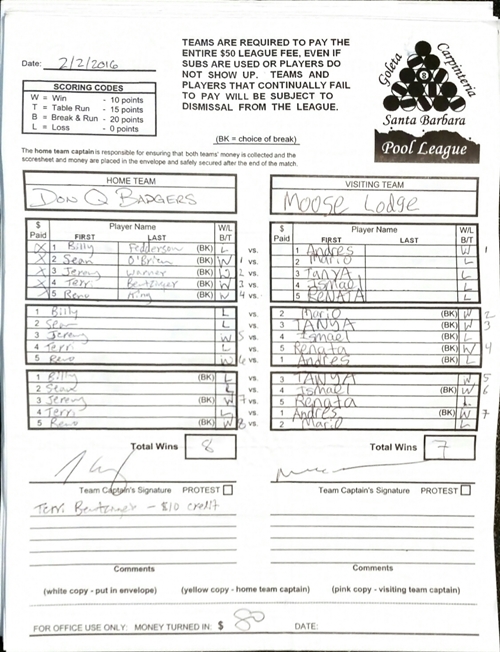 TEAMS ARE REQUIRED TO PAY THE
ENTIRE $50 LEAGUE FEE, EVEN IF
SUBS ARE USED OR PLAYERS DO
NOT SHOW UP. TEAMS AND
PLAYERS THAT CONTINUALLY FAIL
TO PAY WILL BE SUBJECT TO
DISMISSAL FROM THE LEAGUE.
Date: 2/2/2016
SCORING CODES
W = Win - 10 points
T = Table Run - 15 points
B = Break & Run - 20 points
L = Loss - 0 points
Goleta Carpinteria
8
Santa Barbara
Pool League
(BK = choice of break)
The home team captain is responsible for ensuring that both teams' money is collected and the
scoresheet and money are placed in the envelope and safely secured after the end of the match.
HOME TEAM VISITING TEAM
DON Q BADGERS Moose Lodge
$ Paid Player Name FIRST LAST W/L B/T $ Paid Player Name FIRST LAST W/L B/T
X 1 Billy Pedderson (BK) L vs. 1 Andres W 1
X 2 Sean O'Brien (BK) W 1 vs. 2 Mario L
X 3 Jeremy Warner (BK) W 2 vs. 3 TANYA L
X 4 Terri (BK) W 3 vs. 4 Ismael L
X 5 Reno King (BK) W 4 vs. 5 RENATA L
1 Billy L vs. 2 Mario (BK) W 2
2 Sean L vs. 3 TANYA (BK) W 3
3 Jeremy W 5 vs. 4 Ismael (BK) L
4 Terri L vs. 5 Renata (BK) W 4
5 Reno W 6 vs. 1 Andres (BK) L
1 Billy (BK) L vs. 3 TANYA W 5
2 Sean L vs. 4 Ismael (BK) W 6
3 Jeremy (BK) W 7 vs. 5 Renata L
4 Terri L vs. 1 Andres (BK) W 7
5 Reno (BK) W 8 vs. 2 Mario L
Total Wins 8 Total Wins 7
Team Captain's Signature PROTEST Team Captain's Signature PROTEST
Terri - $10 credit
Comments Comments
(white copy - put in envelope) (yellow copy - home team captain) (pink copy - visiting team captain)
FOR OFFICE USE ONLY: MONEY TURNED IN: $ 80 DATE: